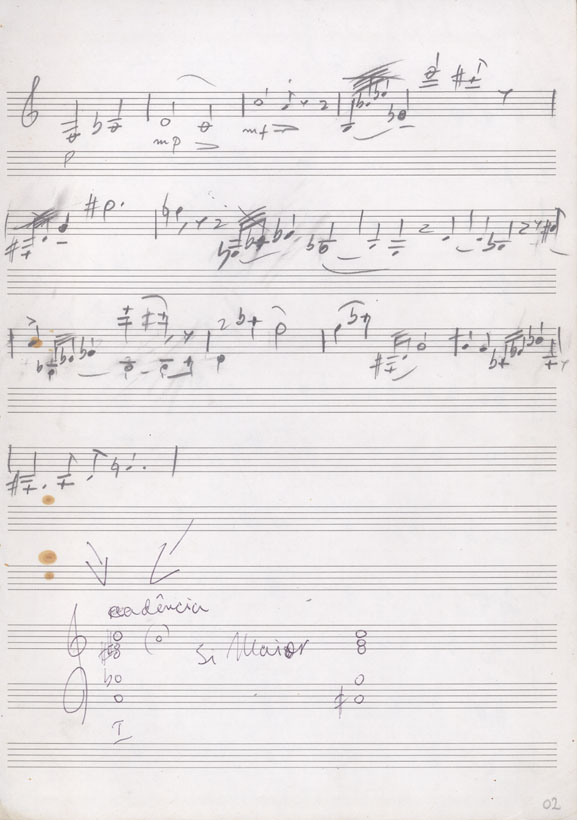 p
mp
mf
cadência
Si Maior
I
02